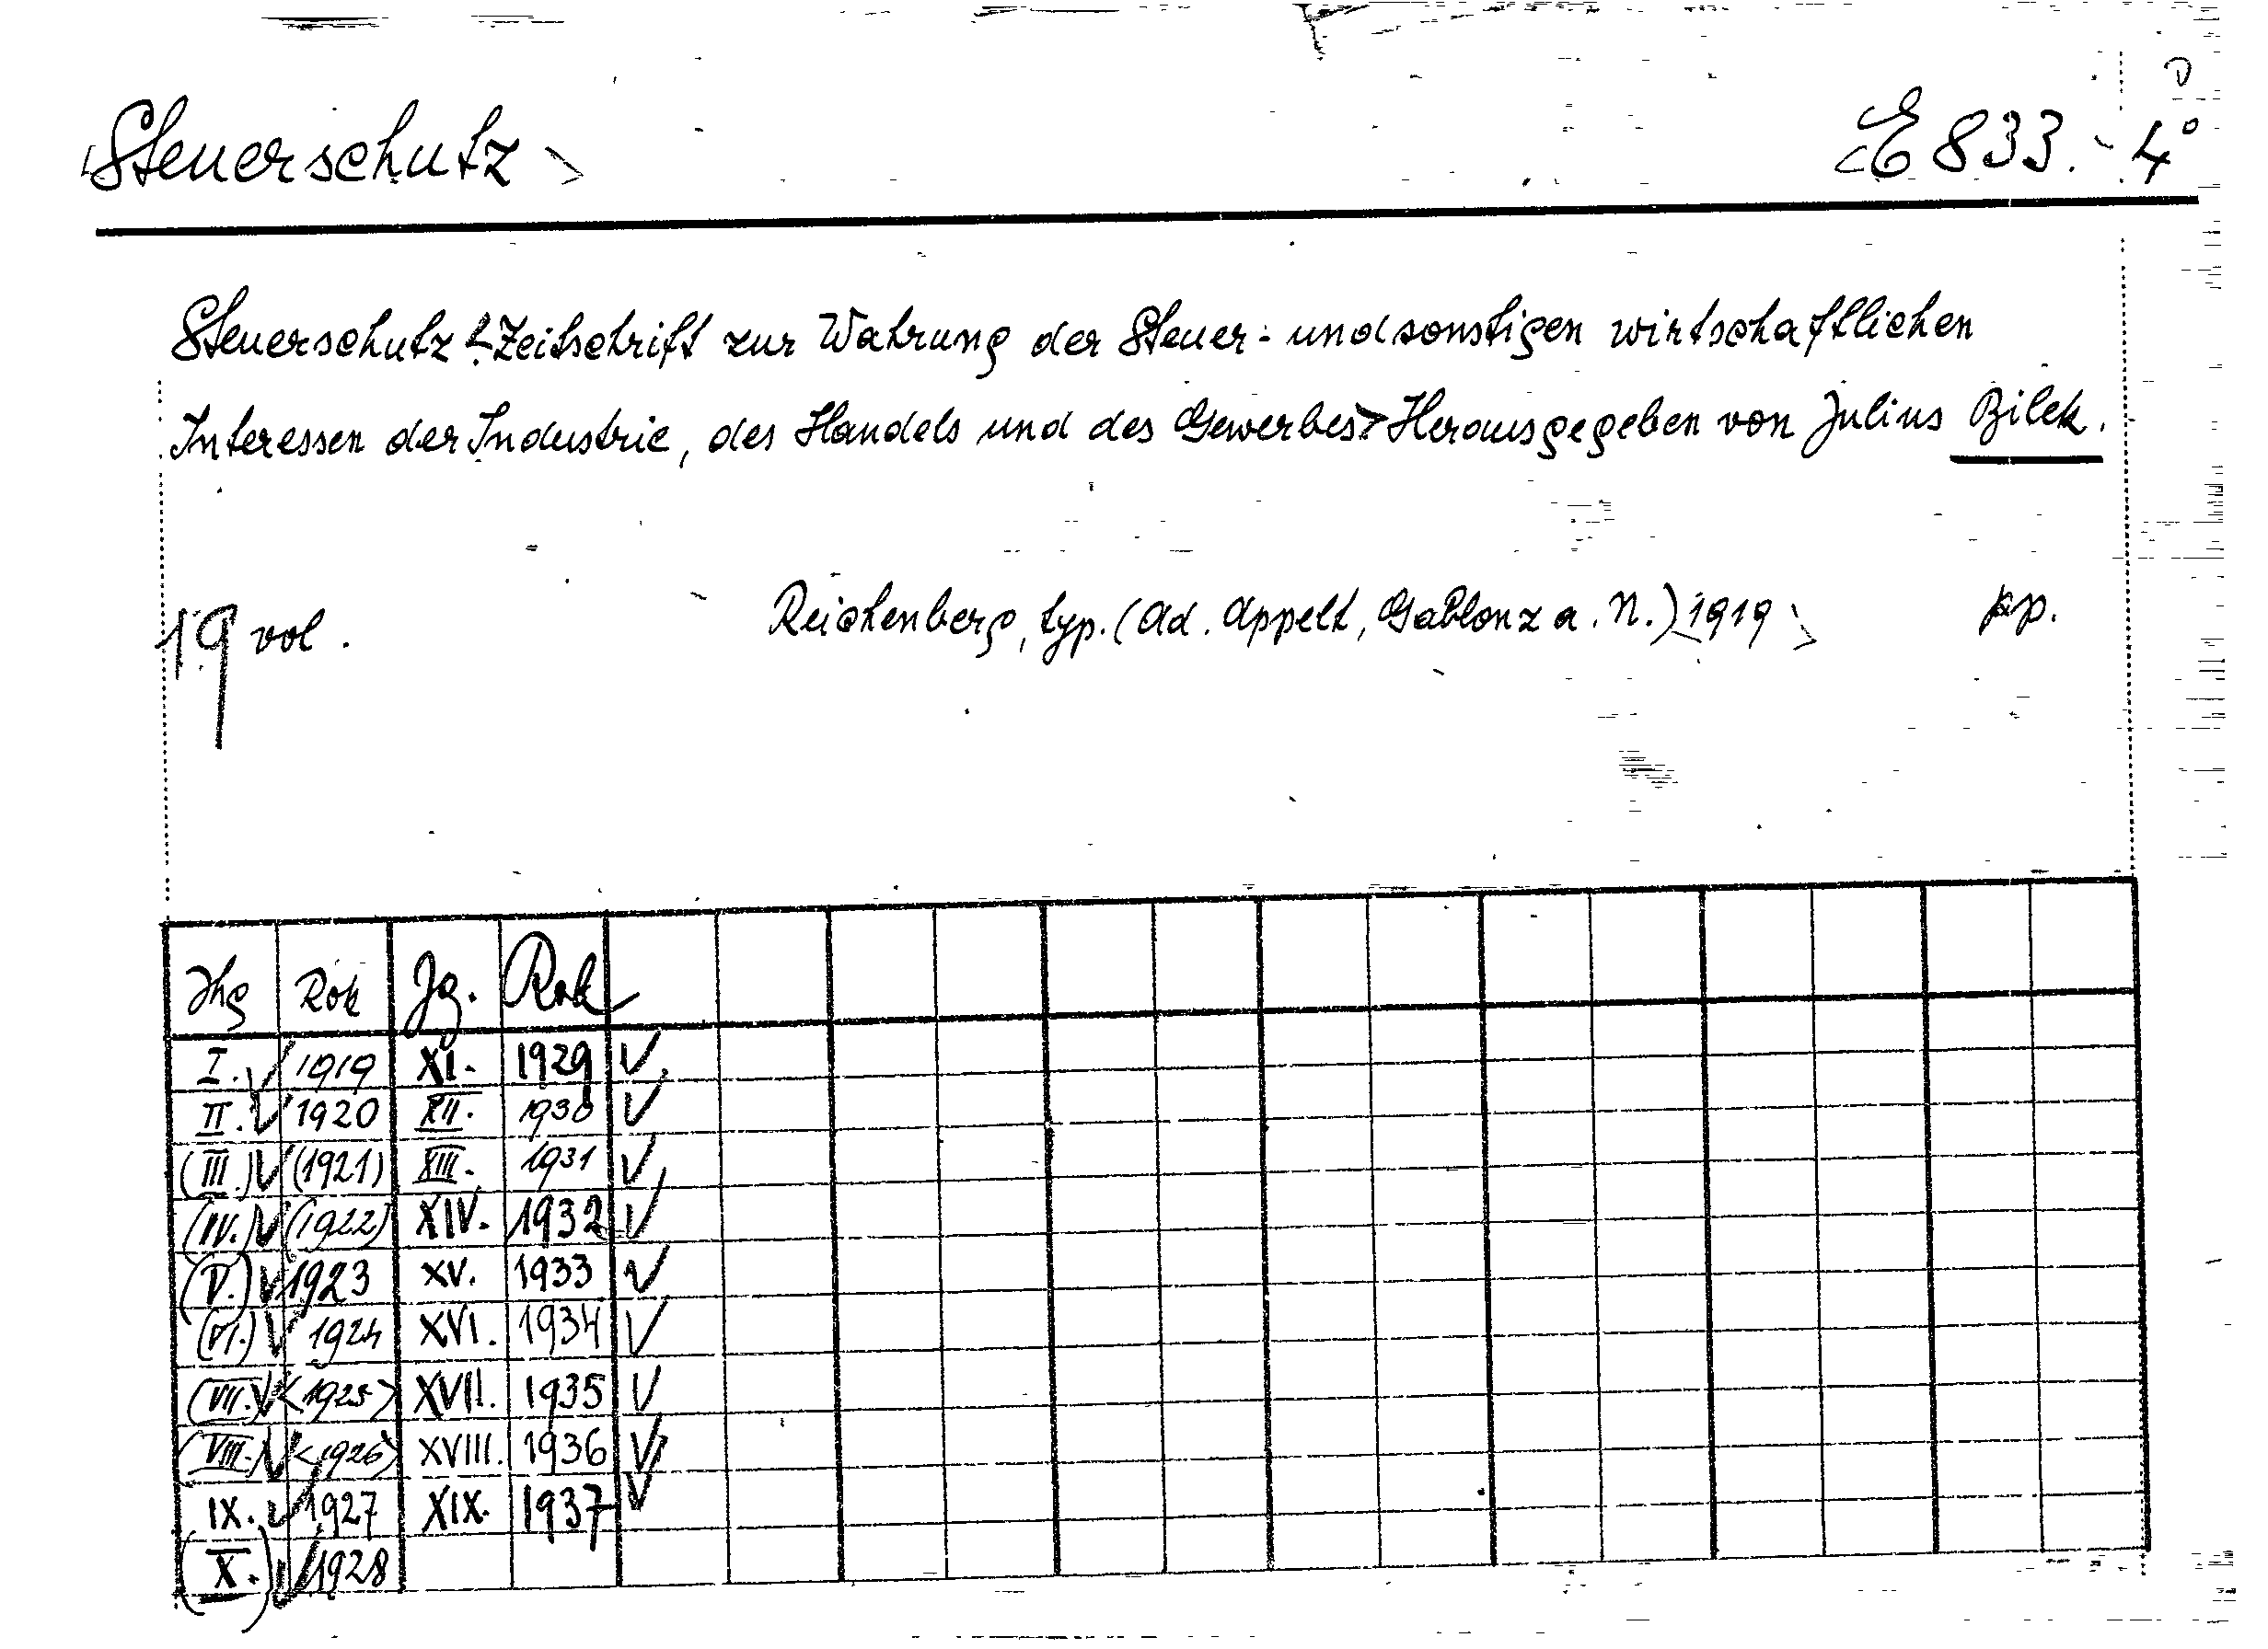 Steuerschutz E 833. - 4°
Steuerschutz < Zeitschrift zur Wahrung der Steuer- und sonstigen wirtschaftlichen
Interessen der Industrie, des Handels und des Gewerbes > Herausgegeben von Julius Bilek.
19 vol. Reichenberg, typ. (Ad. Appelt, Gablonz a. N.) 1919 pp.
Jhg Rok Jg. Rok
I. 1919 XI. 1929
II. 1920 XII. 1930
(III.) (1921) XIII. 1931
(IV.) (1922) XIV. 1932
(V.) 1923 XV. 1933
(VI.) 1924 XVI. 1934
(VII.) <1925> XVII. 1935
(VIII.) <1926> XVIII. 1936
IX. 1927 XIX. 1937
(X.) 1928